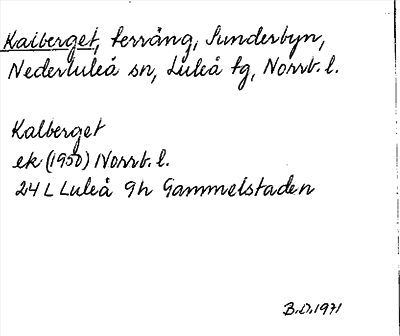 Kalberget, terräng, Sunderbyn,
Nederluleå sn, Luleå tg, Norrb. l.
Kalberget
ek (1950) Norrb. l.
24 L Luleå 9h Gammelstaden
B.D. 1971